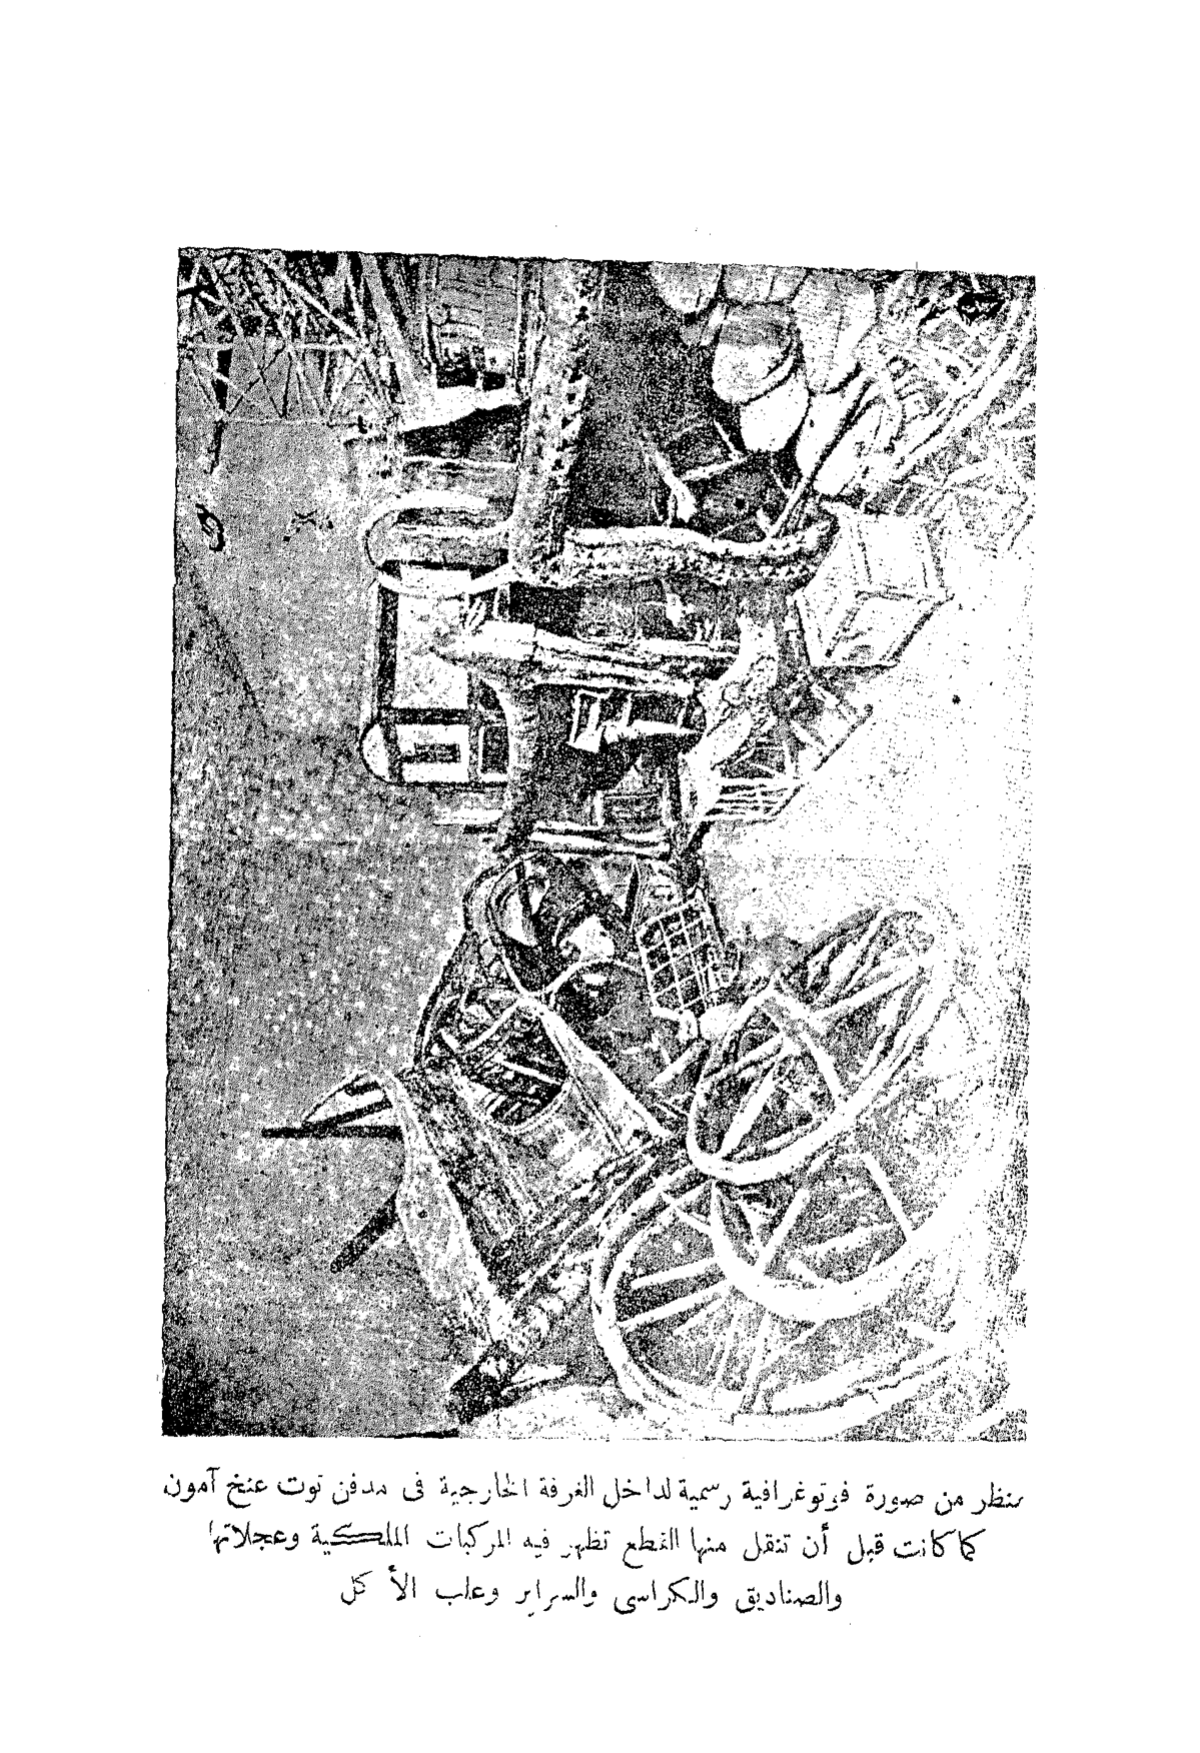 منظر من صورة فوتوغرافية رسمية لداخل الغرفة الخارجية فى مدفن توت عنخ آمون
كما كانت قبل أن تنقل منها القطع تظهر فيه المركبات الملكية وعجلاتها
والصناديق والكراسى والسراير وعلب الأكل